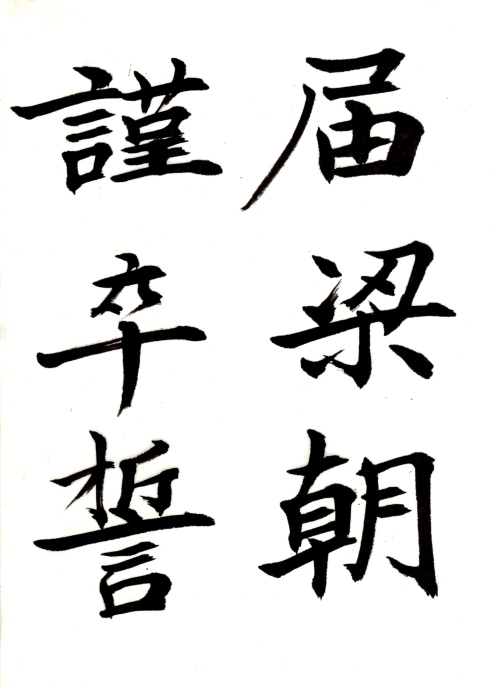 届梁朝
謹卒誓